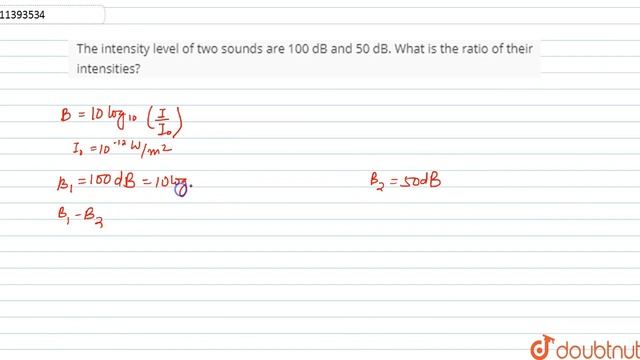 11393534
The intensity level of two sounds are 100 dB and 50 dB. What is the ratio of their
intensities?
B = 10 log₁₀ (I/I₀)
I₀ = 10⁻¹² W/m²
B₁ = 100 dB = 10 log. B₂ = 50 dB
B₁ - B₂
doubtnut